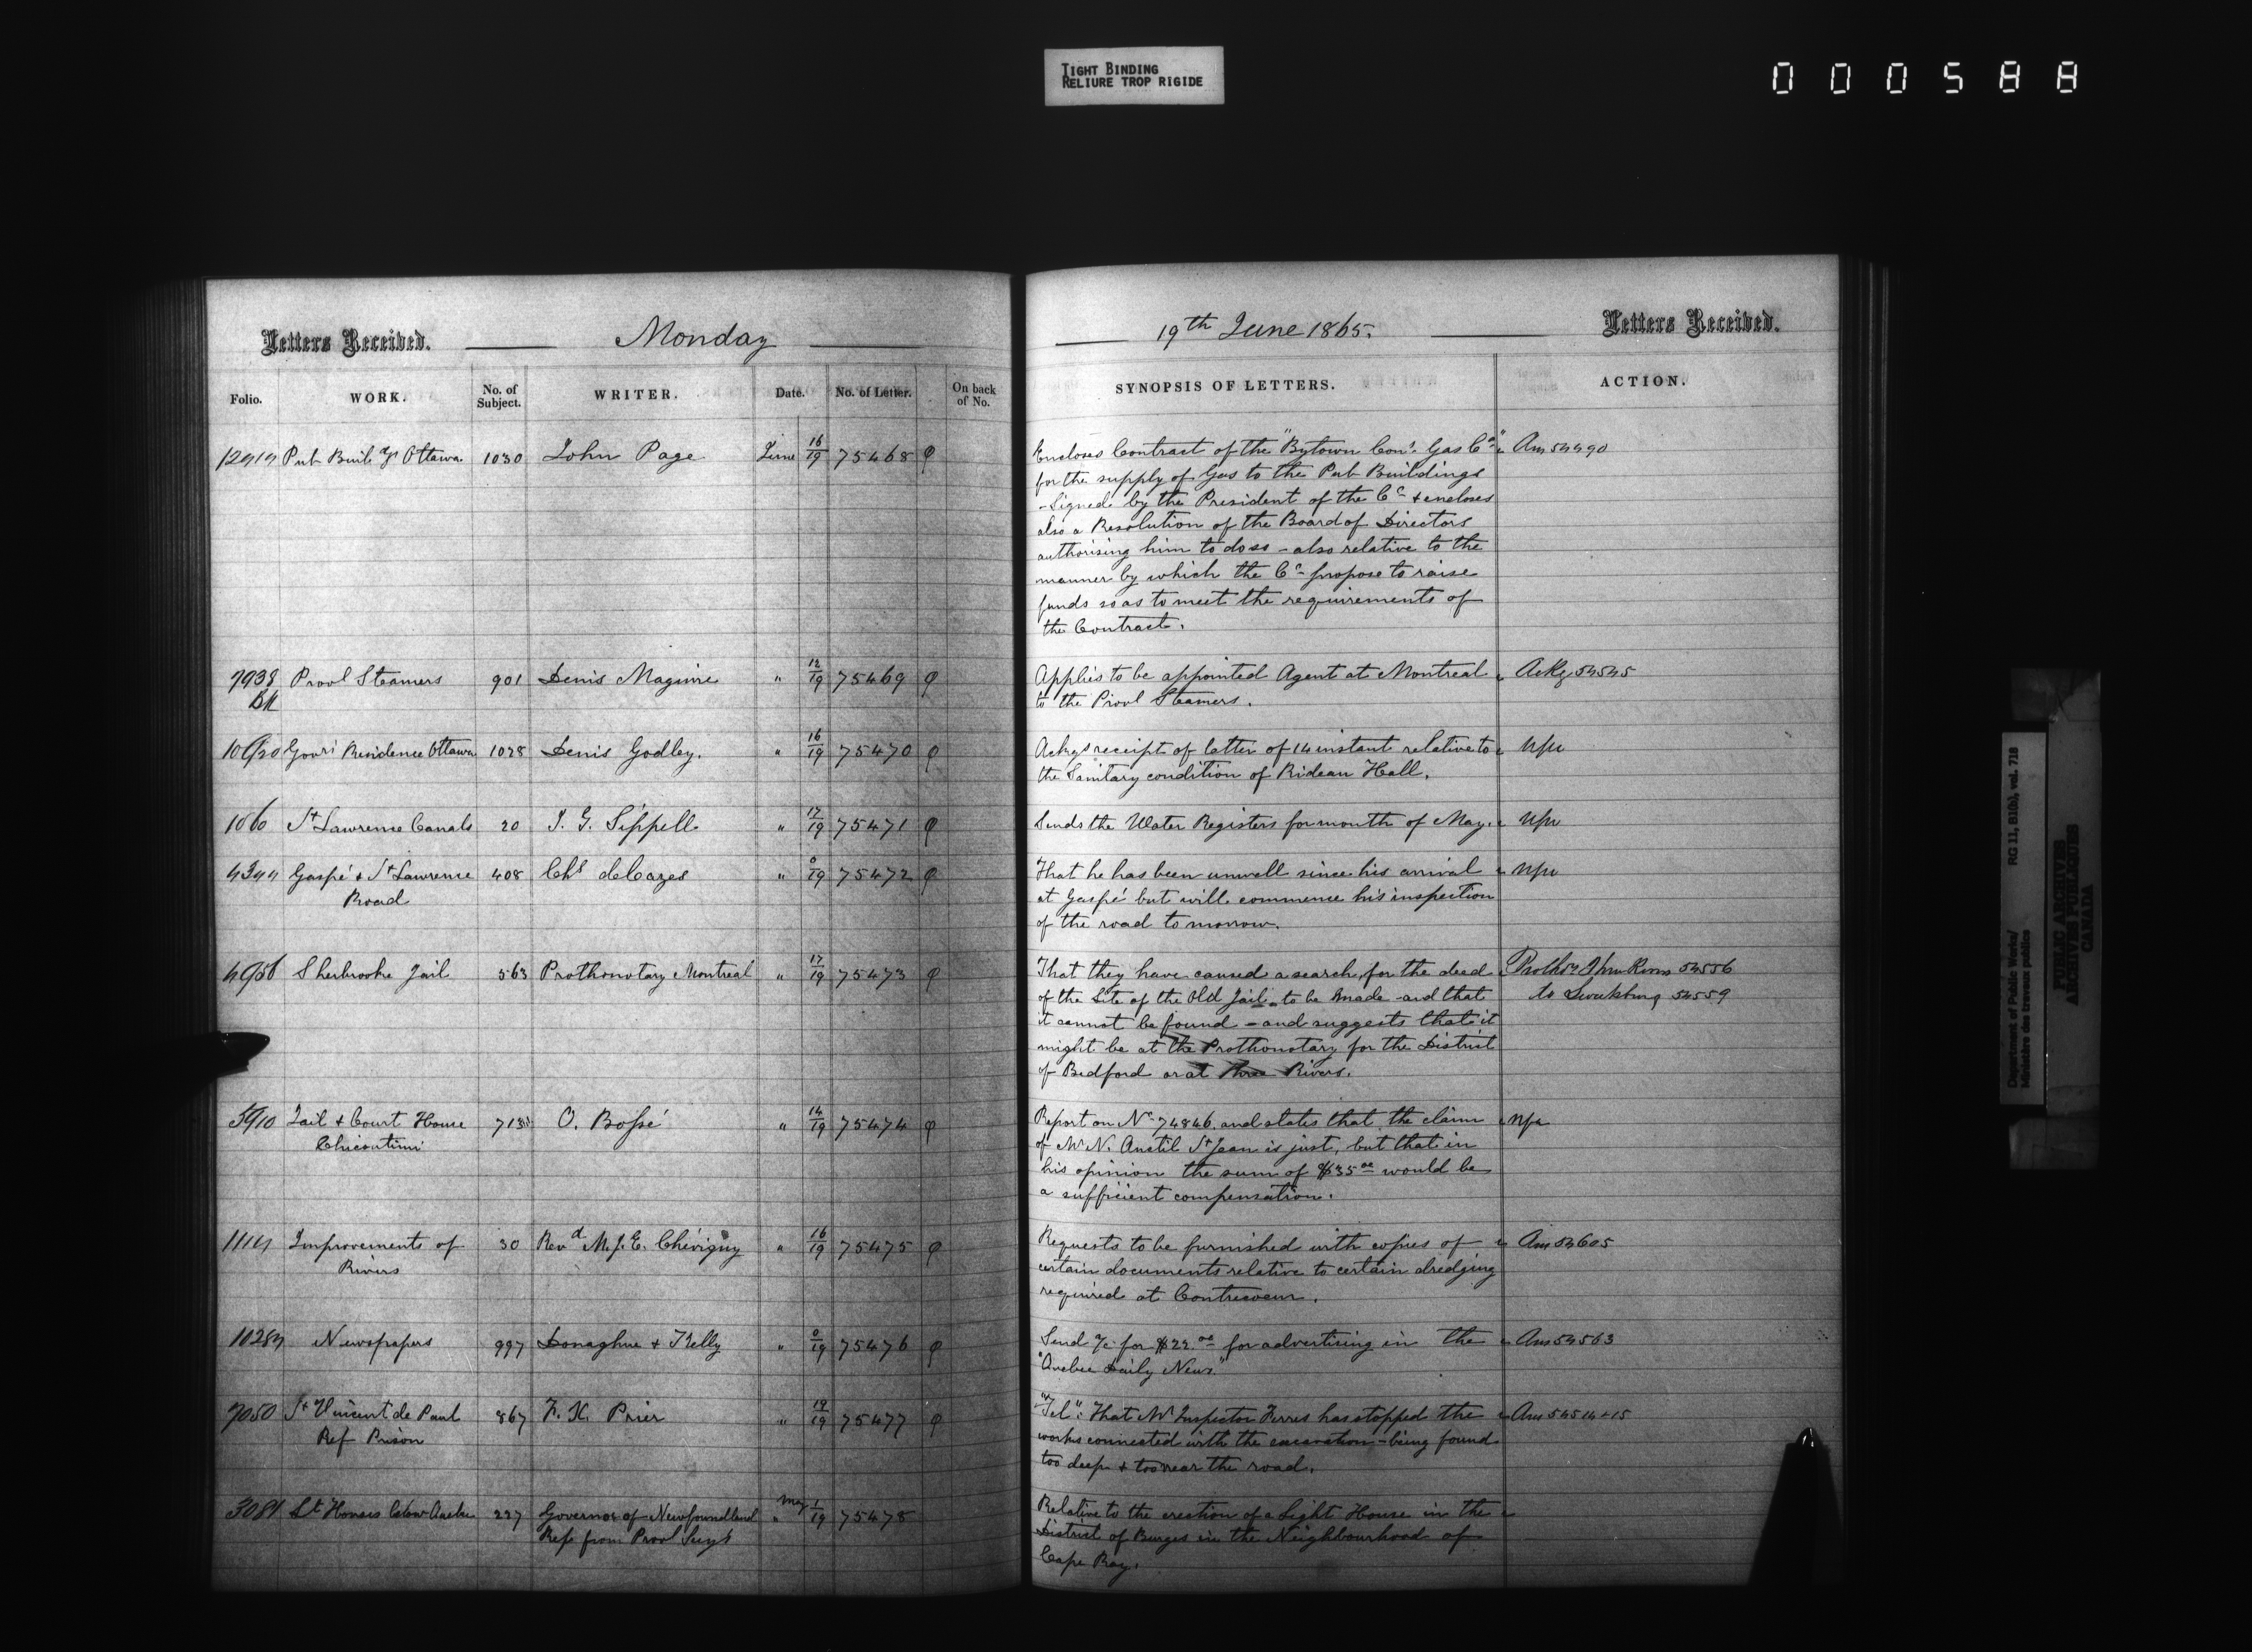 TIGHT BINDING
RELIURE TROP RIGIDE
000588
Letters Received. Monday 19th June 1865. Letters Received.
Folio. WORK. No. of Subject. WRITER. Date. No. of Letter. On back of No. SYNOPSIS OF LETTERS. ACTION.
Pub Build gs Ottawa 1030 John Page June 16/19 75468 Encloses Contract of the "Bytown Con. Gas Co" Ans 54490
for the supply of Gas to the Pub Buildings
- Signed by the President of the Co & encloses
also a Resolution of the Board of Directors
authorising him to do so - also relative to the
manner by which the Co propose to raise
funds so as to meet the requirements of
the Contract.
7938 Provl Steamers 901 Denis Maguire " 12/19 75469 Applies to be appointed Agent at Montreal Ackg 54545
to the Provl Steamers.
Govrs Residence Ottawa 1028 Denis Godley. " 16/19 75470 Ackgs receipt of letter of 14 instant relative to
the Sanitary condition of Rideau Hall.
1060 St Lawrence Canals 20 J. G. Sippell " 17/19 75471 Sends the Water Registers for month of May.
Gaspé & St Lawrence 408 Chs deCazes " 0/19 75472 That he has been unwell since his arrival
Road at Gaspé but will commence his inspection
of the road to morrow.
Sherbrooke Jail 563 Prothonotary Montreal " 17/19 75473 That they have caused a search for the deed 54556
of the Site of the Old Jail to be made and that to 54559
it cannot be found - and suggests that it
might be at the Prothonotary for the District
of Bedford or at Three Rivers.
5910 Jail & Court House O. Bossé " 14/19 75474 Report on No 74846. and states that the claim
Chicoutimi of Mr N. Anctil St Jean is just, but that in
his opinion the sum of $35 00 would be
a sufficient compensation.
Improvements of 30 Revd M. J. E. Chévigny " 16/19 75475 Requests to be furnished with copies of Ans 54605
Rivers certain documents relative to certain dredging
required at Contrecoeur.
Newspapers 997 Donaghue & Kelly " 0/19 75476 Send a/c for $22 00 for advertising in the Ans 54563
"Quebec Daily News"
7050 St Vincent de Paul 867 F. X. Prier " 19/19 75477 "Tel": That Mr Inspector Ferres has stopped the Ans 54514+15
Ref Prison works connected with the excavation - being found
too deep & too near the road.
Lt Houses below Quebec 227 Governor of Newfoundland May 1/19 75478 Relative to the erection of a Light House in the
Refs from Provl Secy District of Burgeo in the Neighbourhood of
Cape Ray.
Department of Public Works/
Ministère des travaux publics
RG 11, B1(b), vol. 718
PUBLIC ARCHIVES
ARCHIVES PUBLIQUES
CANADA